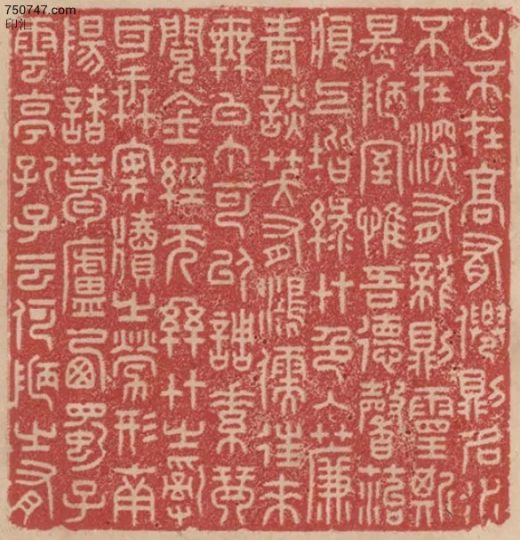 750747.com
印汇
山不在高有僊則名水
不在深有龍則靈斯
是陋室惟吾德馨苔
痕上堦綠艸色入簾
青談笑有鴻儒往來
無白丁可以調素琴
閱金經无絲竹之亂
耳無案牘之勞形南
陽諸葛廬西蜀子
雲亭孔子云何陋之有